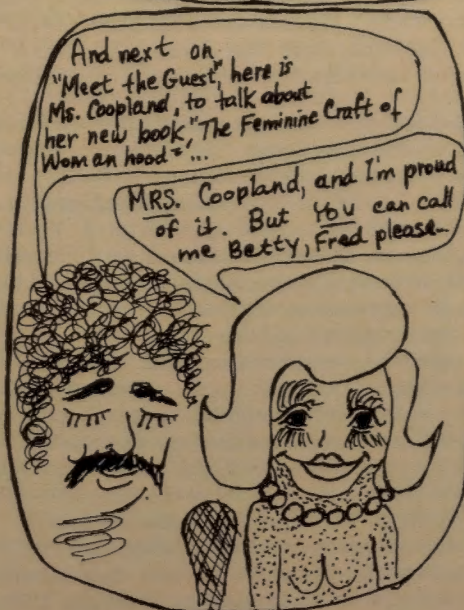 And next on
"Meet the Guest", here is
Ms. Coopland, to talk about
her new book, "The Feminine Craft of
Womanhood"...
MRS. Coopland, and I'm proud
of it. But You can call
me Betty, Fred please...